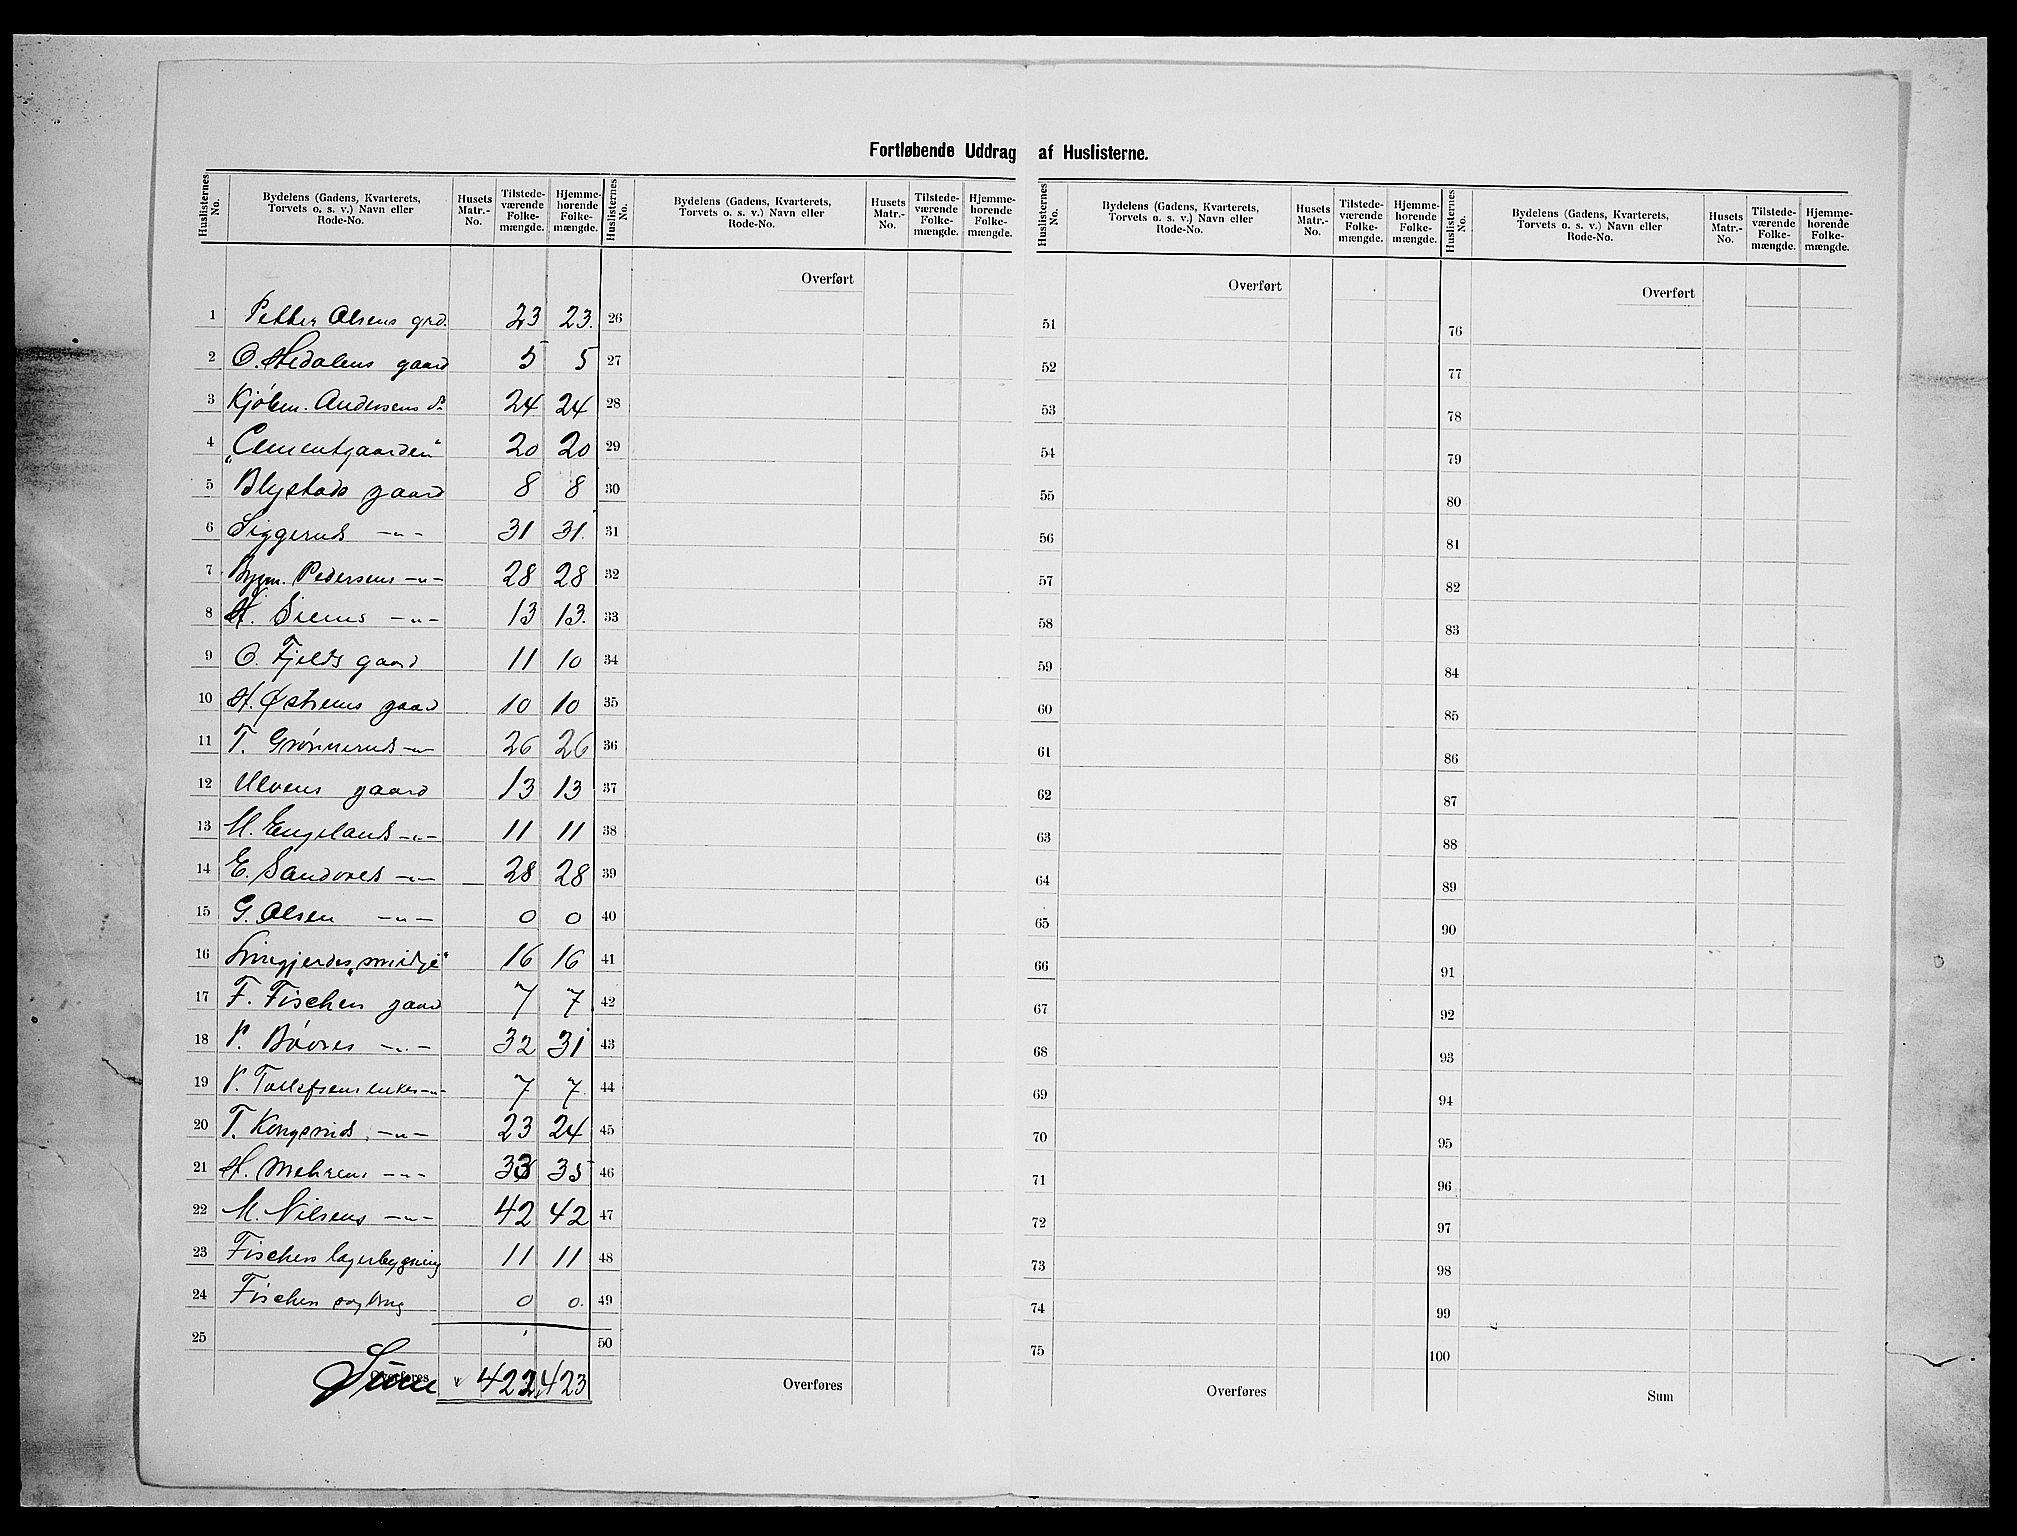 Fortløbende Uddrag af Huslisterne.
Huslisternes No. Bydelens (Gadens, Kvarterets, Torvets o. s. v.) Navn eller Rode-No. Husets Matr.-No. Tilstedeværende Folkemængde. Hjemmehørende Folkemængde. Huslisternes No. Bydelens (Gadens, Kvarterets, Torvets o. s. v.) Navn eller Rode-No. Husets Matr.-No. Tilstedeværende Folkemængde. Hjemmehørende Folkemængde. Huslisternes No. Bydelens (Gadens, Kvarterets, Torvets o. s. v.) Navn eller Rode-No. Husets Matr.-No. Tilstedeværende Folkemængde. Hjemmehørende Folkemængde. Huslisternes No. Bydelens (Gadens, Kvarterets, Torvets o. s. v.) Navn eller Rode-No. Husets Matr.-No. Tilstedeværende Folkemængde. Hjemmehørende Folkemængde.
Overført Overført Overført
1 Petter Olsens grd. 23 23. 26 51 76
2 O. Hedalens gaard 5 5 27 52 77
3 Kjøbm. Andersens 24 24 28 53 78
4 "Cementgaarden" 20 20 29 54 79
5 Blystads gaard 8 8 30 55 80
6 Siggeruds -"- 31 31. 31 56 81
7 Bygm. Pedersens -"- 28 28 32 57 82
8 H. -"- 13 13. 33 58 83
9 O. Fjelds gaard 11 10 34 59 84
10 H. Østrems gaard 10 10 35 60 85
11 T. Grønneruds -"- 26 26 36 61 86
12 Ulvens gaard 13 13 37 62 87
13 M. Engelands -"- 11 11 38 63 88
14 E. -"- 28 28 39 64 89
15 G. Olsen -"- 0 0 40 65 90
16 "smidje" 16 16 41 66 91
17 F. Fischers gaard 7 7 42 67 92
18 P. -"- 32 31 43 68 93
19 P. Tollefsens enkes -"- 7 7. 44 69 94
20 T. Kongsruds -"- 23 24 45 70 95
21 H. Mehrens -"- 33 35 46 71 96
22 M. Nilsens -"- 42 42 47 72 97
23 Fischers lagerbygning 11 11 48 73 98
24 Fischers sagbrug 0 0. 49 74 99
25 50 75 100
Overføres Sum 422 423 Overføres Overføres Sum